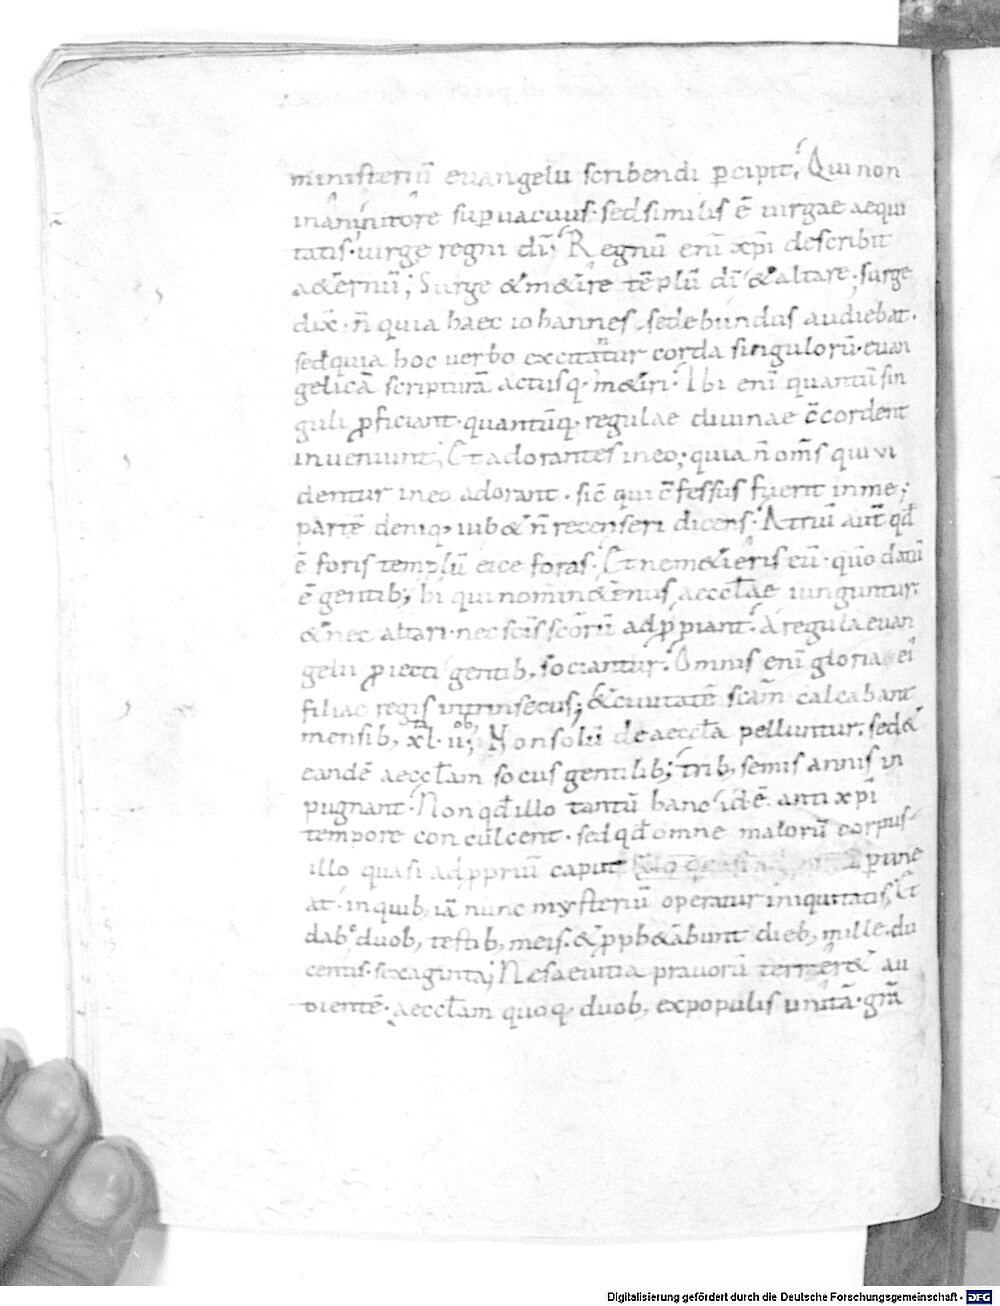 ministeriū euangelii scribendi ꝑcipit. Qui non
inani nitore supuacuus. sed similis ē uirgae aequi
tatis. uirge regni dī; Regnū enī xp̄i describit
aeternū; Surge & metire tēplū dī & altare. surge
dix̄. n̄ quia haec iohannes sedebundus audiebat.
sed quia hoc uerbo excitantur corda singulorū. euan
gelicā scripturā actusq; metiri. Ibi enī quantū sin
guli ꝓficiant. quantūq; regulae diuinae c̄cordent
inueniunt; Et adorantes in eo; quia n̄ om̄s qui vi
dentur in eo adorant. sic̄ qui c̄fessus fuerit in me;
partē deniq; iub& n̄ recenseri dicens. Atriū aut̄ qd̄
ē foris templū eice foras. Et ne metieris eū. quō datū
ē gentib; hi qui nomine tenus aeccl̄ae iunguntur.
& nec altari nec sc̄is sc̄orū adꝓpiant. a regula euan
gelii ꝓiecti gentib; sociantur. Omnis enī gloria ei
filiae regis intrinsecus; & ciuitatē sc̄am calcabunt
mensib; xl. ii; Non solū de aeccl̄a pelluntur. sed &
eandē aeccl̄am sociis gentilib; trib; semis annis in
pugnant. Non qd̄ illo tantū hanc idē antixp̄i
tempore conculcent. sed qd̄ omne malorū corpus
illo quasi ad ꝓpriū caput ꝑtine
at. in quib; iā nunc mysteriū operatur iniquitatis. Et
dabo duob; testib; meis. & ꝓph&abunt dieb; mille. du
centis. sexaginta; Ne saeuitia prauorū terrer& au
dientē. aeccl̄am quoq; duob; ex populis unitā. grā